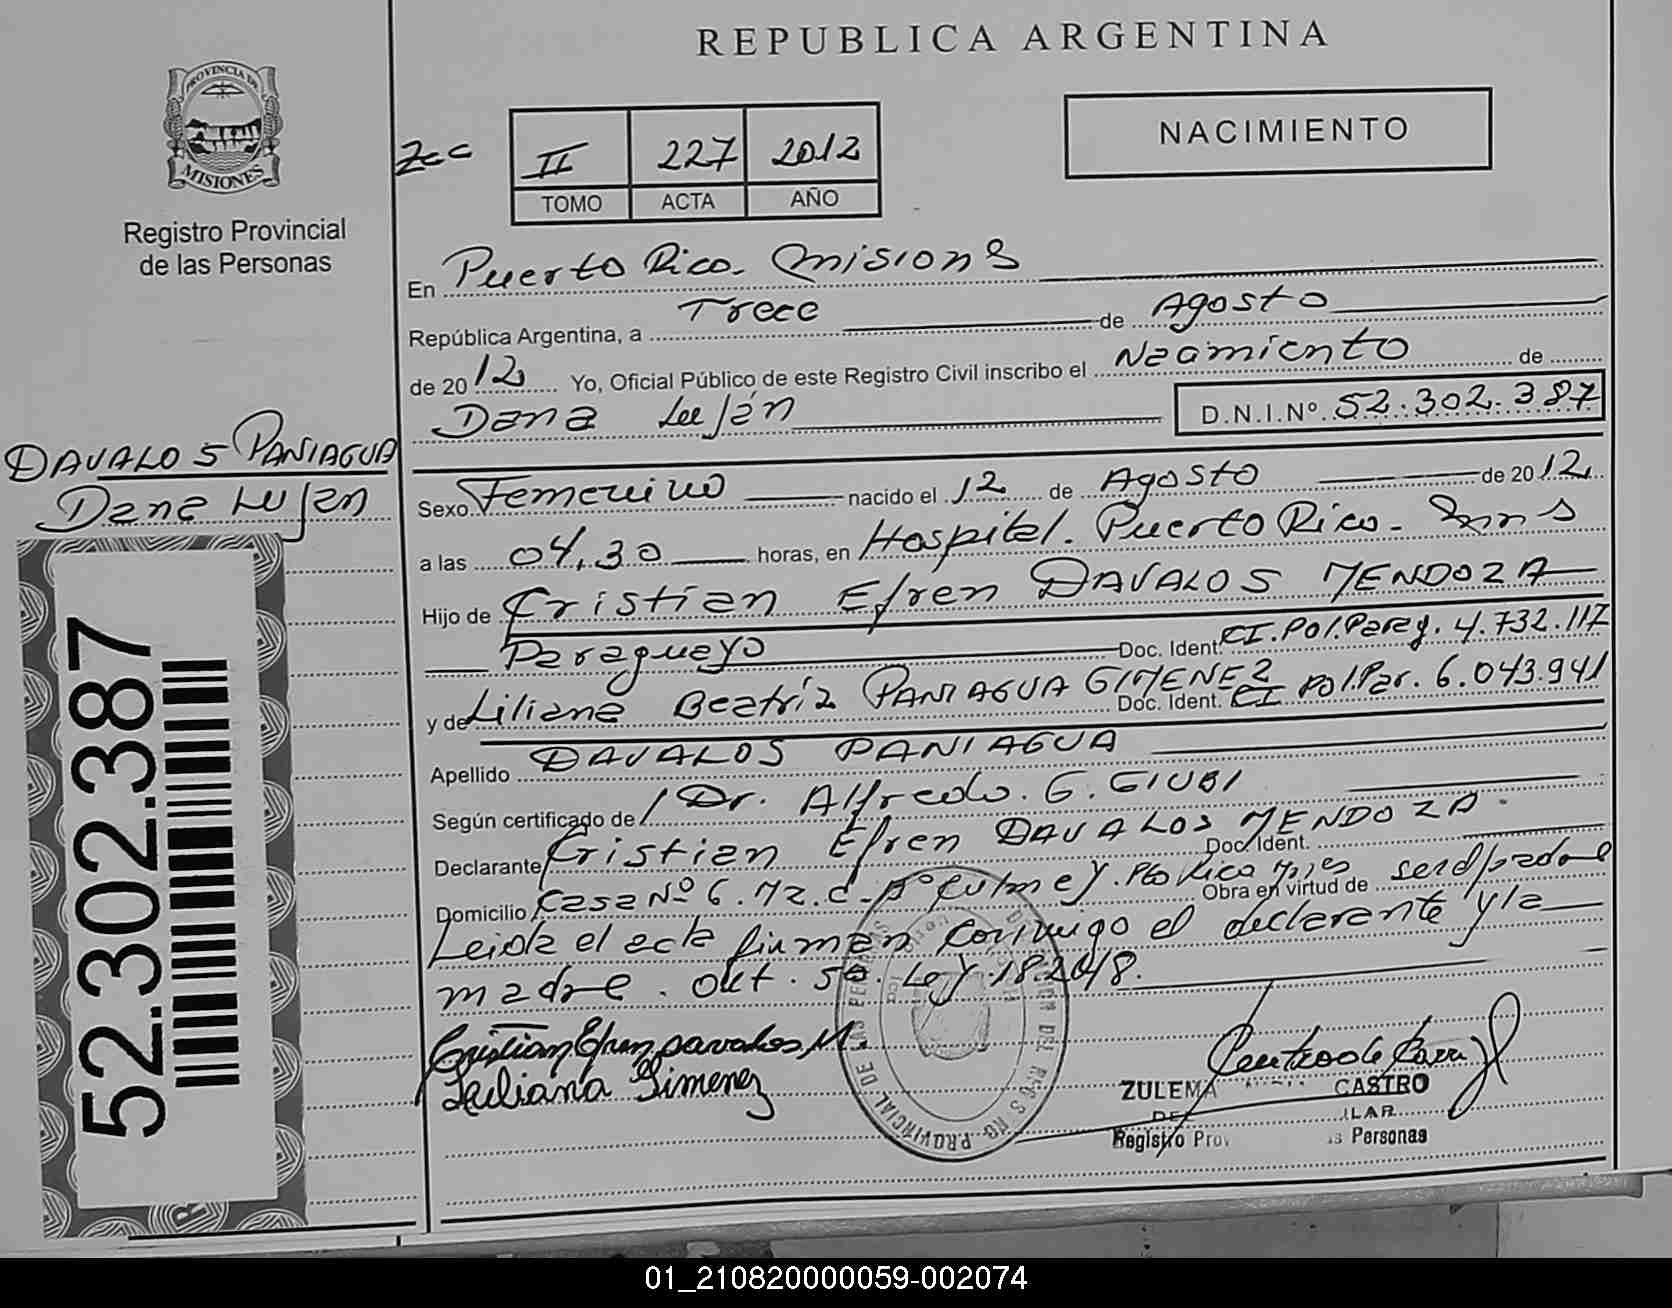 REPUBLICA ARGENTINA
PROVINCIA DE
MISIONES
Registro Provincial
de las Personas
II 227 2012
TOMO ACTA AÑO
NACIMIENTO
En Puerto Rico. Misiones
República Argentina, a Trece de Agosto
de 2012 Yo, Oficial Público de este Registro Civil inscribo el Nacimiento de
Dana Luján D.N.I.Nº. 52.302.387
DAVALOS PANIAGUA
Dana Lujan
Sexo Femenino nacido el 12 de Agosto de 2012
a las 04,30 horas, en Hospital. Puerto Rico-
Hijo de Cristian Efren DAVALOS MENDOZA
Paraguayo Doc. Ident. CI.Pol.Parag. 4.732.117
y de Liliana Beatriz PANIAGUA GIMENEZ Doc. Ident. CI pol.Par. 6.043.941
Apellido DAVALOS PANIAGUA
Según certificado de Dr. Alfredo. G. GIUBI
Declarante Cristian Efren DAVALOS MENDOZA Doc. Ident.
Domicilio Casa Nº 6. Mz. C- Bº Pto Rico Obra en virtud de
Leida el acta firman conmigo el declarante y la
madre. Ley 18248.
Cristian Efren Davalos M.
Liliana Gimenez
ZULEMA CASTRO
Registro Personas
52.302.387
01_210820000059-002074